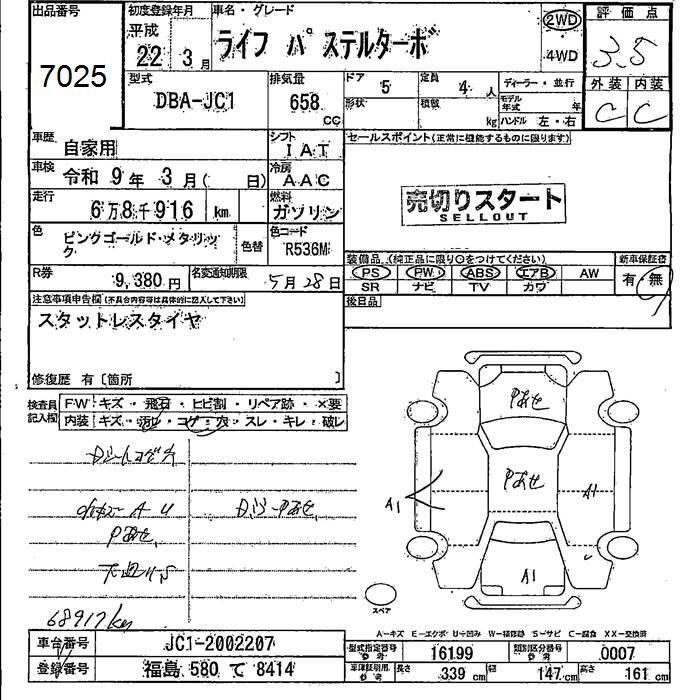 出品番号
7025
初度登録年月
平成
22年 3月
車名・グレード
ライフ パステルターボ
2WD
・4WD
評価点
3.5
型式
DBA-JC1
排気量
658
CC
ドア 5
定員 4 人
形状
積載 kg
ディーラー・並行
モデル年式 年
ハンドル 左・右
外装 内装
C C
車歴
自家用
シフト
IAT
セールスポイント(正常に機能するものに限ります)
車検
令和 9年 3月( 日)
冷房
AAC
売切りスタート
SELLOUT
走行
6万8千916 km
燃料
ガソリン
色
ピンクゴールド・メタリック
色替
色コード
R536M
装備品 (純正品に限り○をつけてください)
新車保証書
PS PW ABS エアB AW
有・無
SR ナビ TV カワ
R券
9,380円
名変通知期限
5月28日
後日品
注意事項申告欄(不具合内容等は具体的に記入して下さい)
スタットレスタイヤ
修復歴 有〔箇所 〕
検査員記入欄
F・W キズ・飛石・ヒビ割・リペア跡・×要
内装 キズ・汚レ・コゲ・穴・スレ・キレ・破レ
Pあせ
Pあせ
A1
A1
A1
A U
Pあせ
68917km
スペア
A-キズ E-エクボ U-凹み W-補修跡 S-サビ C-腐食 XX-交換済
車台番号
JC1-2002207
登録番号
福島 580 て 8414
型式指定番号
参考
16199
類別区分番号
参考
0007
車庫証明用
参考
長さ 339 cm
幅 147 cm
高さ 161 cm